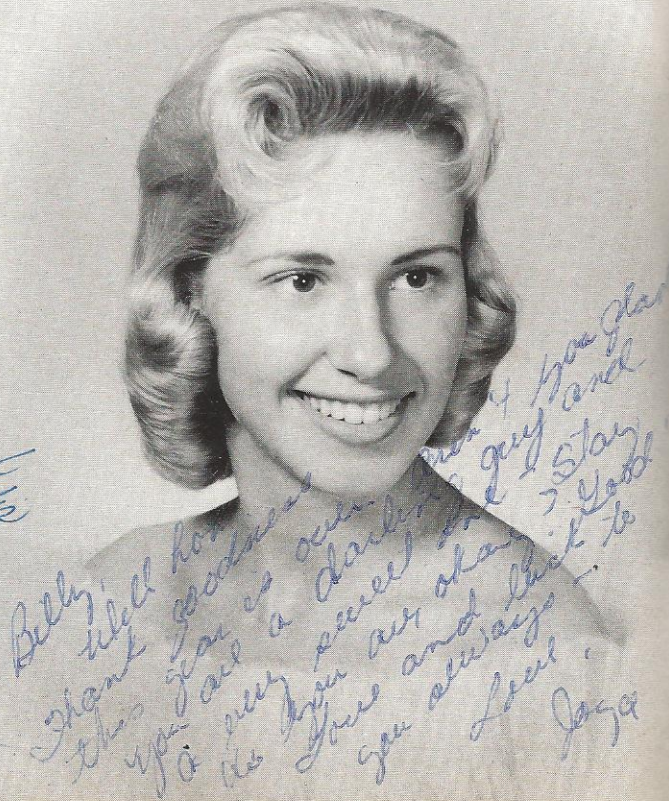 Billy,
Well hon
Thank goodness
this year is over. Aren't you glad
you are a darling guy and
a very sweet one. Stay
as you are, okay? Good
Love and luck to
you always -
Love,
Joyce